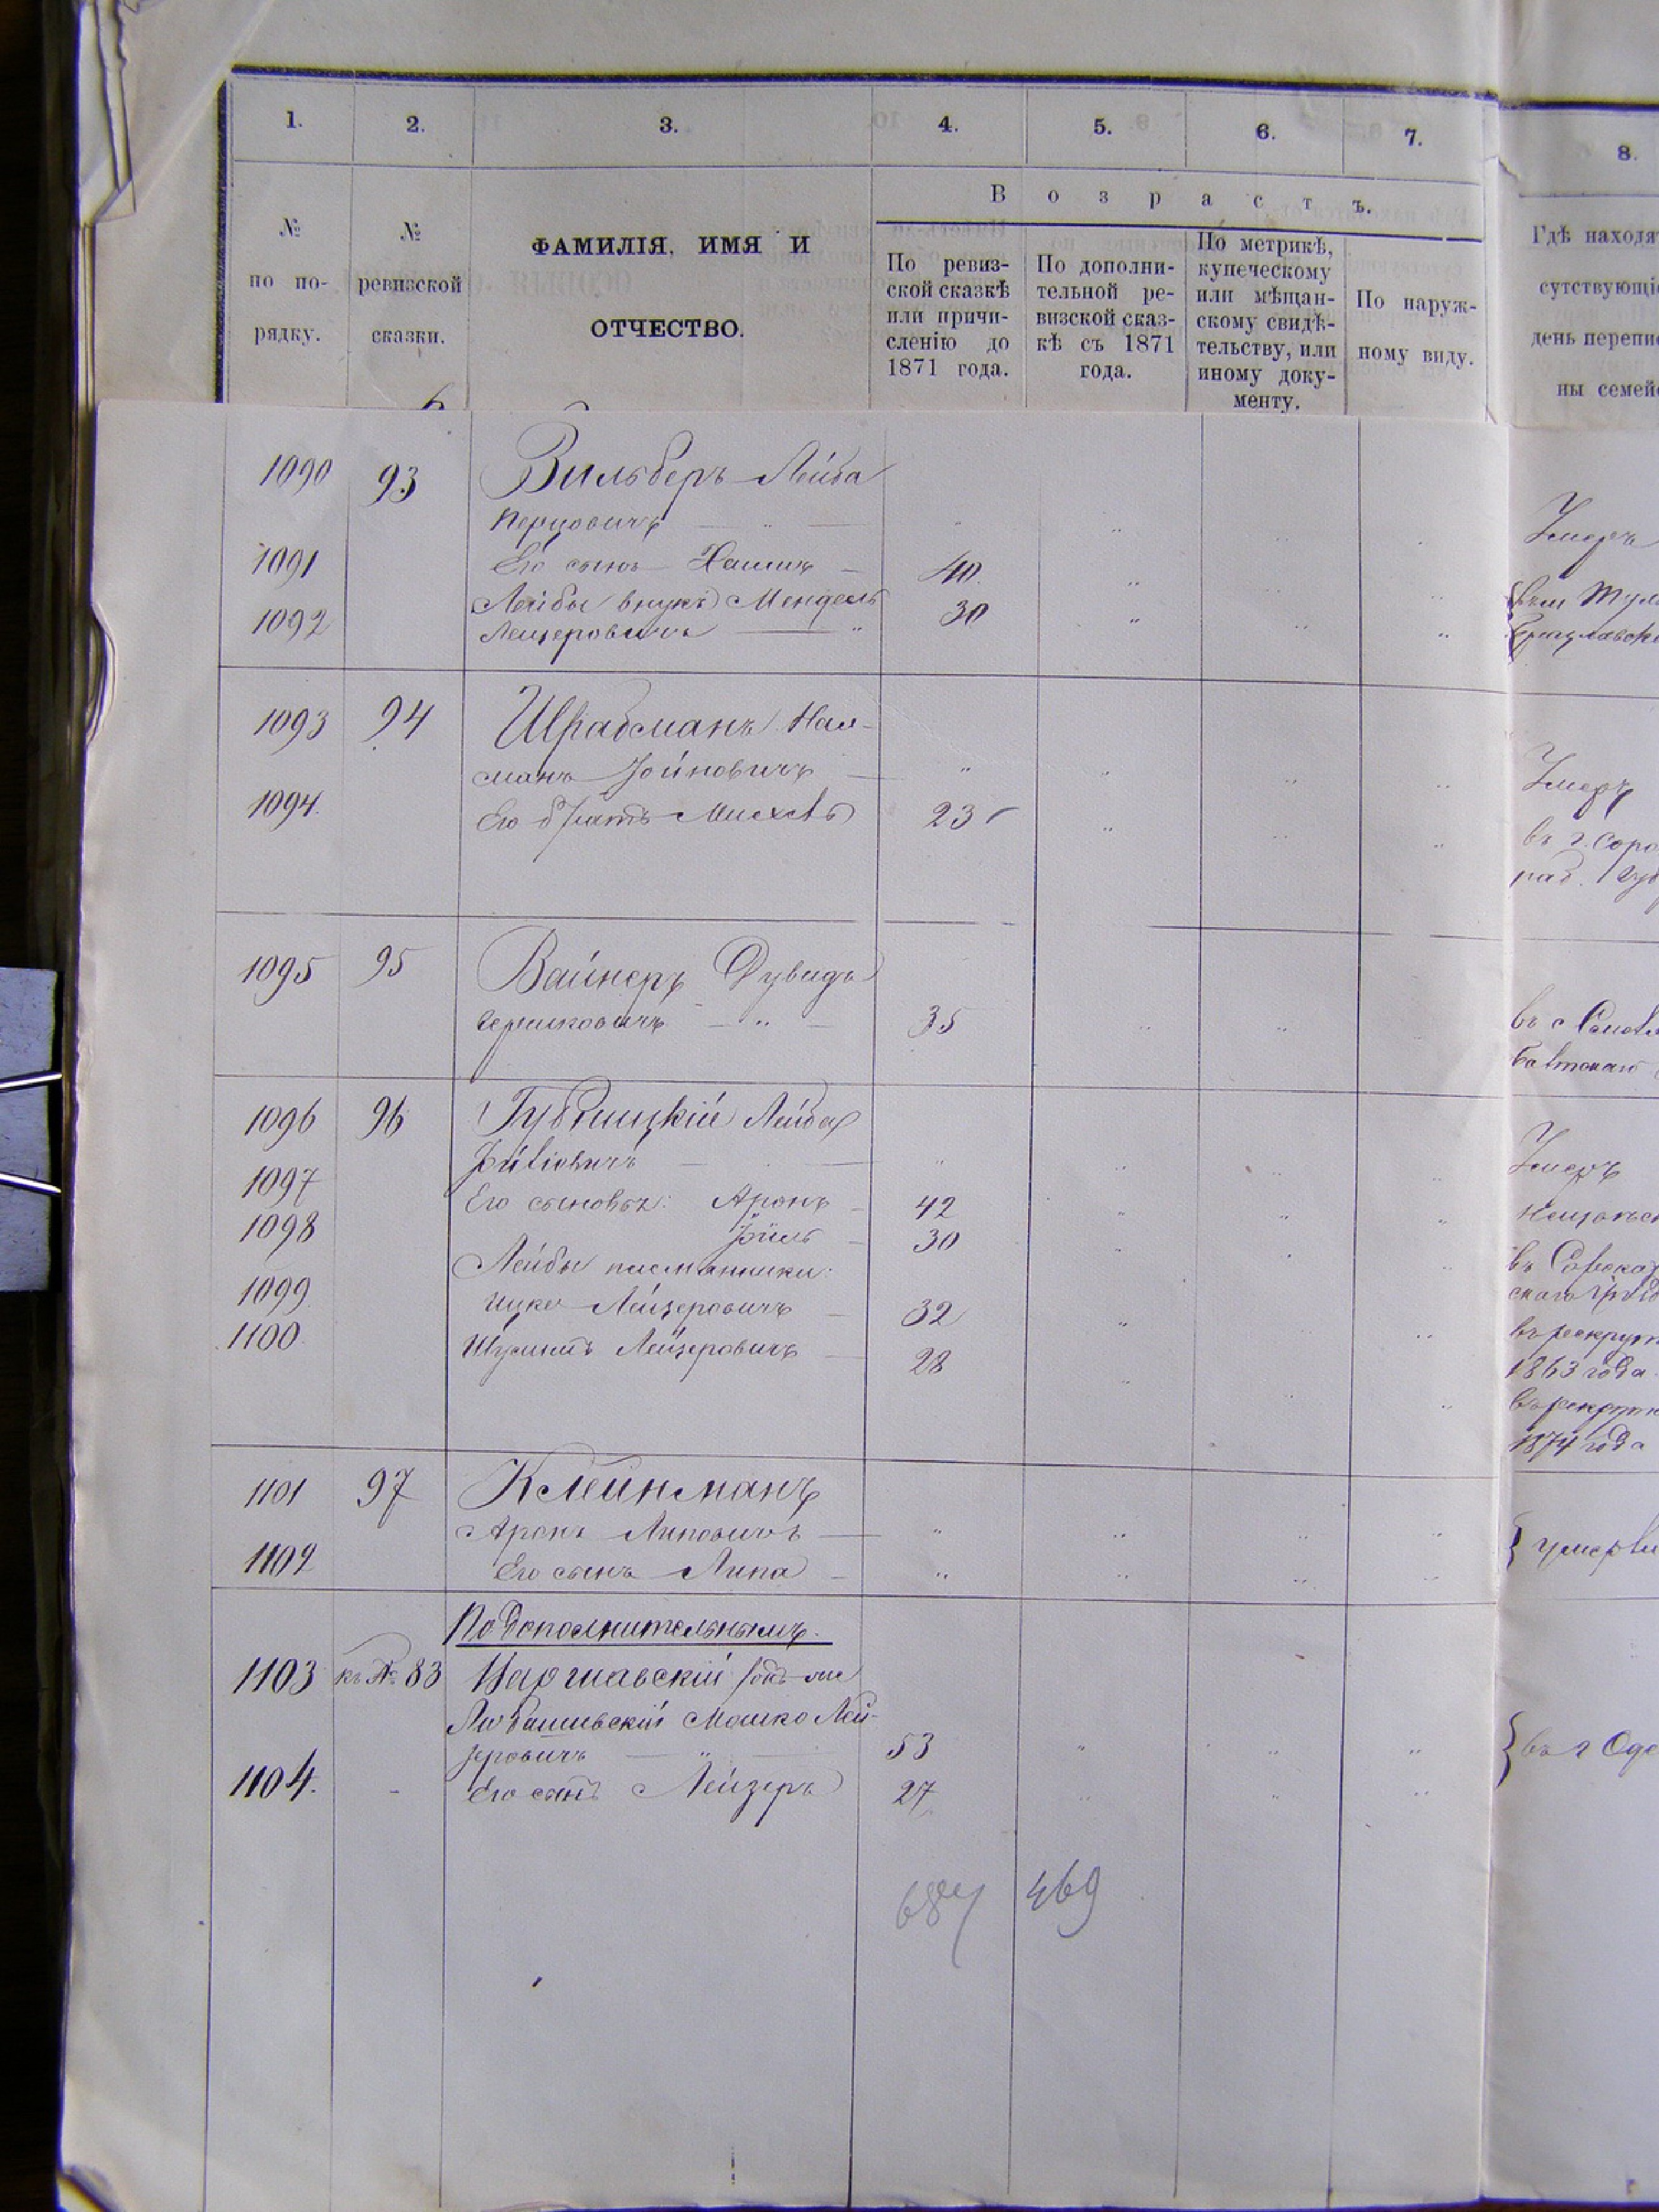 1. 2. 3. 4. 5. 6. 7. 8.
В о з р а с т ъ.
№ по по-рядку.
№ ревизской сказки.
ФАМИЛІЯ, ИМЯ И
ОТЧЕСТВО.
По ревиз-
ской сказкѣ
или причи-
сленію до
1871 года.
По дополни-
тельной ре-
визской сказ-
кѣ съ 1871
года.
По метрикѣ,
купеческому
или мѣщан-
скому свидѣ-
тельству, или
иному доку-
менту.
По наруж-
ному виду.
Гдѣ находят
сутствующі
день перепи
ны семей
1090 93 Вильберъ Лейба
Перцовичъ " " " " Умеръ
1091 Его сынъ 40 " "
1092 Лейбы внукъ Мендель 30 " " "
Лейзеровичъ
1093 94 Штрабманъ Нах-
манъ Іойновичъ " " " " Умеръ
1094. Его братъ 23 " " " въ г. Соро
1095 95 Вайнеръ Дувидъ
Бершковичъ 35 " " въ с
Балтскаго
1096 96 Лейба
" " " " Умеръ
1097 Его сыновья: Аронъ 42 " " "
1098 Іойль 30 " " " въ Сорока
Лейбы племянники: скаго
1099 Ицко Лейзеровичъ 32 " " въ рекрут
1100 Лейзеровичъ 28 " " " 1863 года
въ рекрут
1874 года
1101 97 Клейнманъ
Аронъ Липовичъ " " " "
1102 Его сынъ Липа " " " " } умерли
По дополнительнымъ.
1103 къ № 83 Варшавскій онъ-же
Любашевскій Мошко Лей-
зеровичъ 53 " " " } въ г Оде
1104. - Его сынъ Лейзеръ 27 " " "
684 469